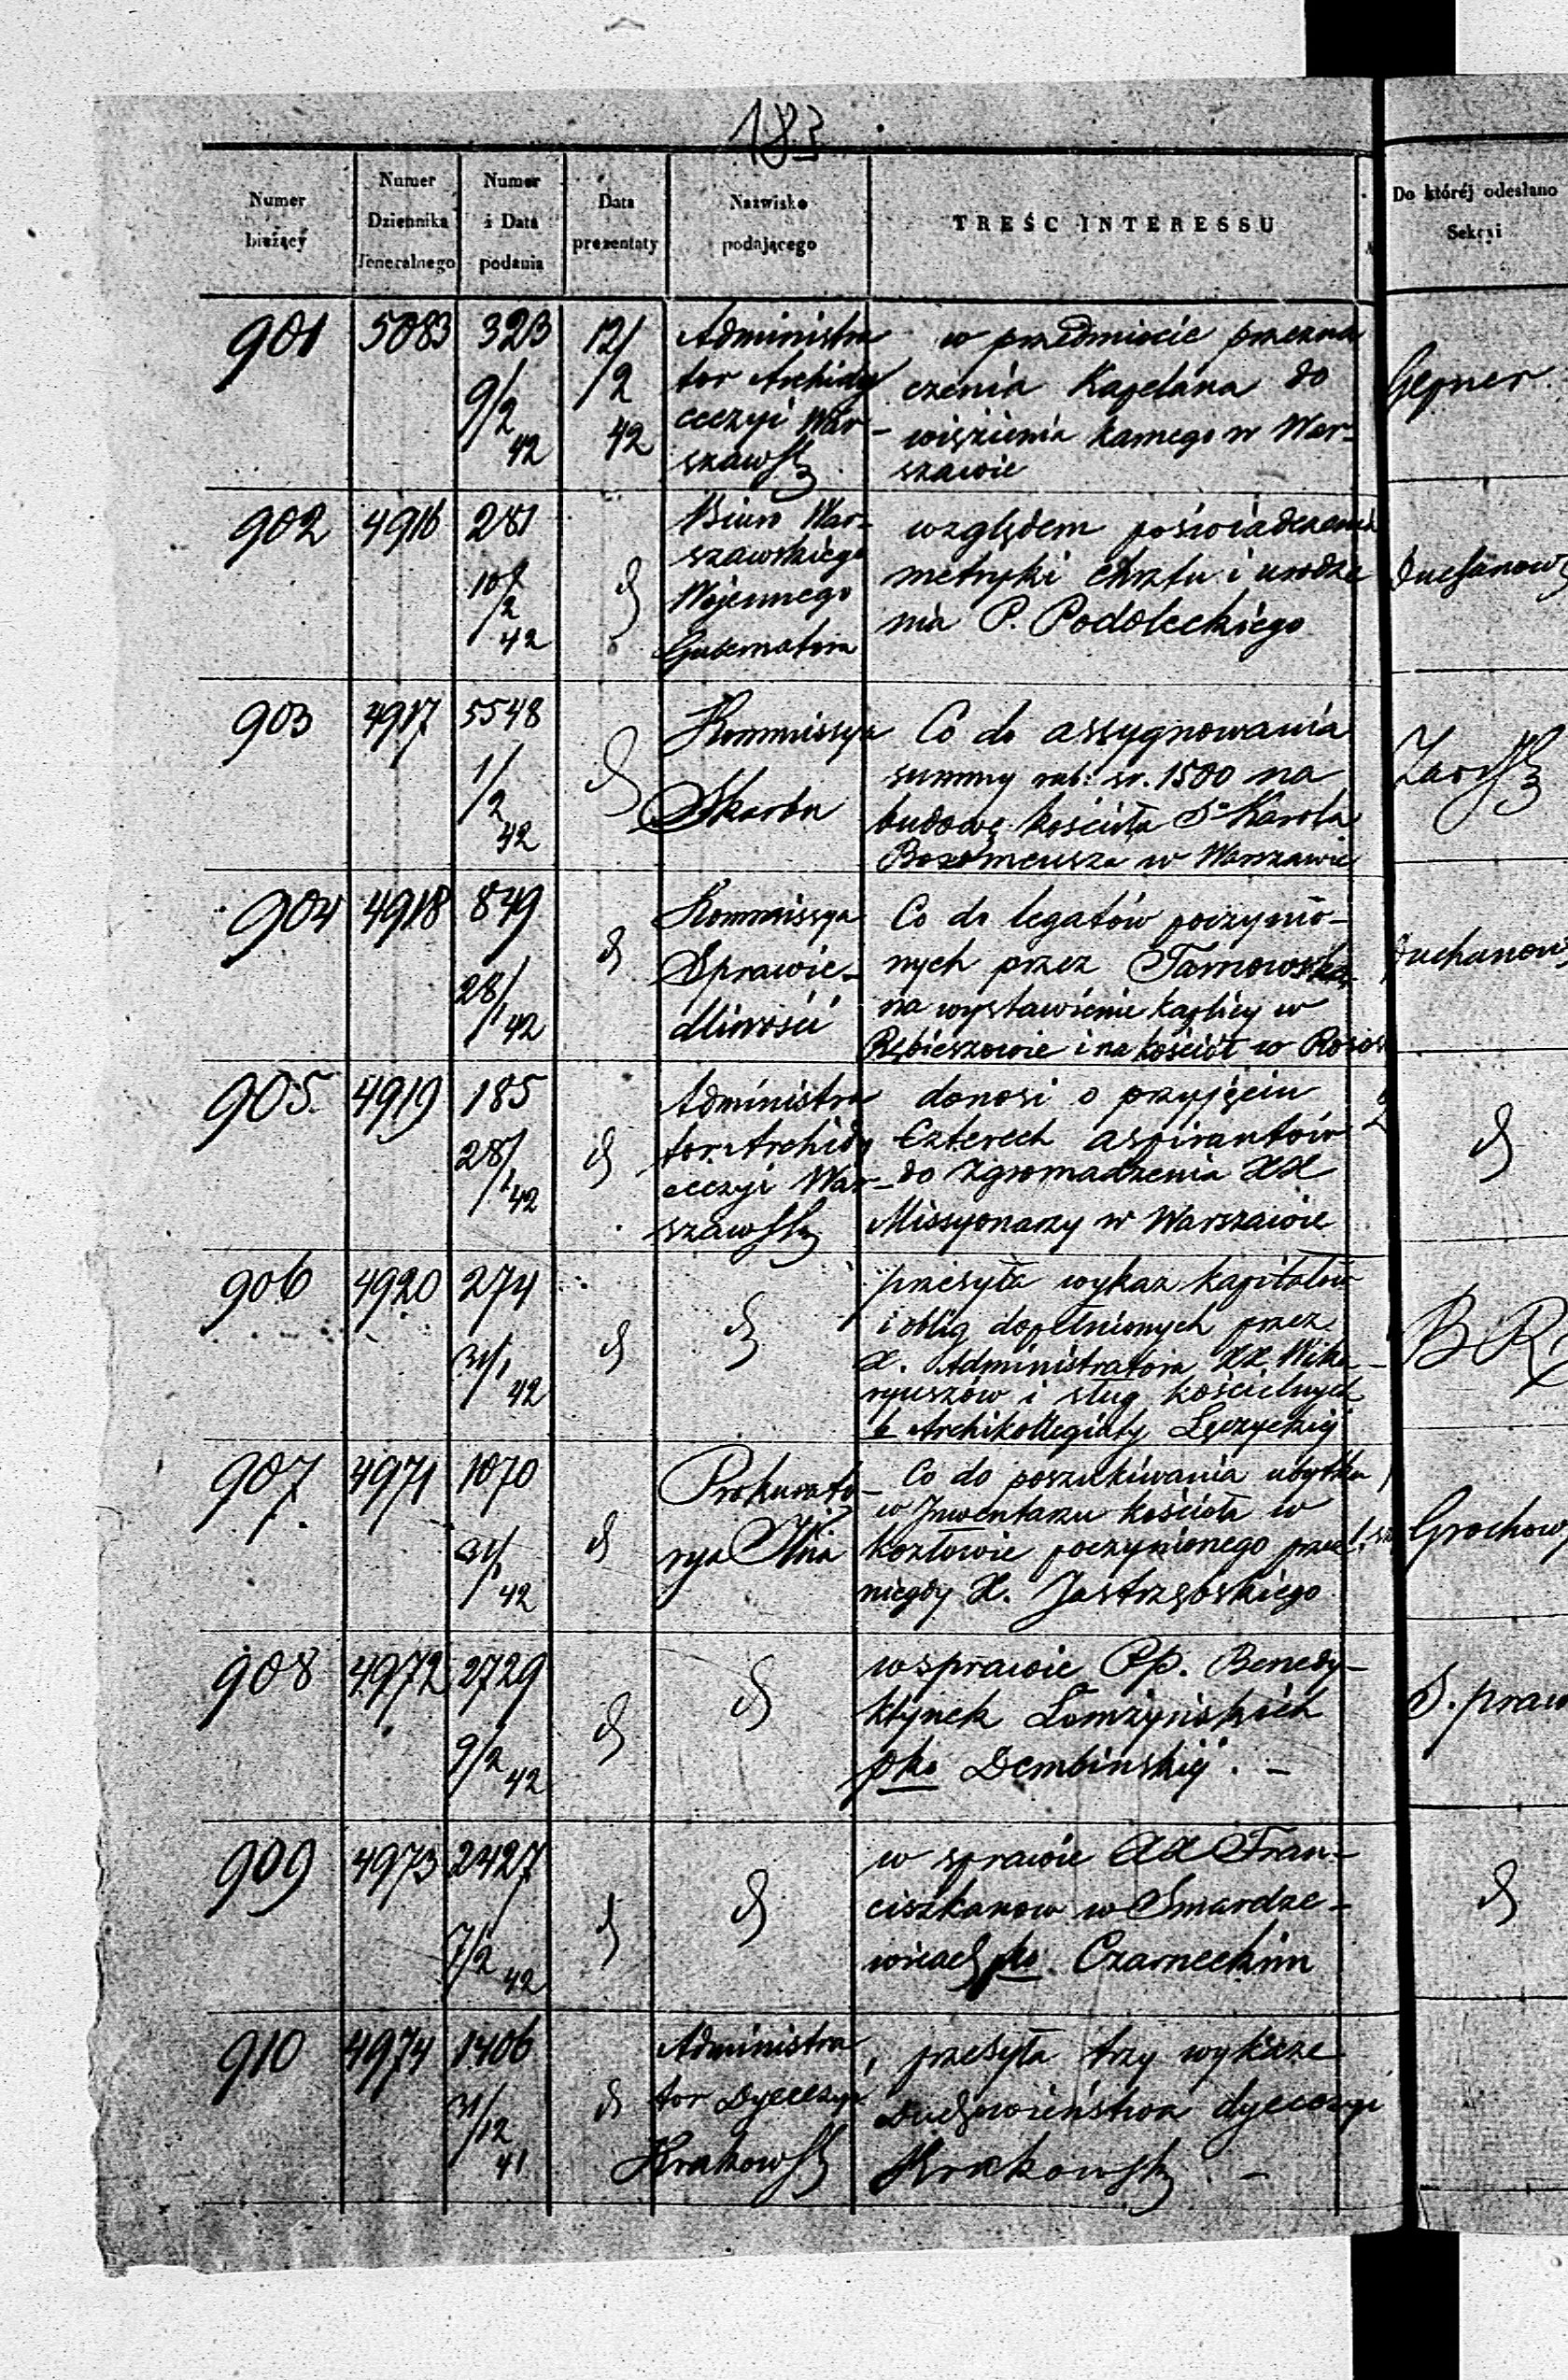 183
Numer bieżący
Numer Dziennika Jeneralnego
Numer i Data podania
Data prezentaty
Nazwisko podającego
TREŚĆ INTERESSU
Do któréj odesłano Sekcyi
901 5083 323 9/2 42 12/2 42
Administra
tor Archidy
ecezyi War-
szawsk
w przedmiocie przezna
czenia Kapelana do
więzienia karnego w War-
szawie
Gepner
902 4916 281 10/2 42 d
Biuro War-
szawskiego
Wojennego
Gubernatora
względem poświadczenia
metryki chrztu i urodze
nia P. Podoleckiego
Duchanow
903 4917 5548 1/2 42 d
Kommissya
Skarbu
Co do assygnowania
summy rub: sr. 1500 na
budowę kościoła Sº Karola
Boromeusza w Warszawie
904 4918 849 28/1 42 d
Kommissya
Sprawie-
dliwości
Co do legatów poczynio-
nych przez Tarnowską
na wystawienie kaplicy w
Rębieszowie i na kościół w
Duchanow
905 4919 185 28/1 42 d
Administra
tor Archidy
ecezyi War-
szawsk
donosi o przyjęciu
czterech aspirantów
do Zgromadzenia XX
Missyonarzy w Warszawie
d
906 4920 274 31/1 42 d
d
przesyła wykaz kapitałów
i oblig dopełnionych przez
X. Administratora XX Wika-
ryuszów i sług kościelnych
b Archikollegiaty Łęczyckiéj
BR
907 4971 1070 31/1 42 d
Prokurato-
rya
Co do poszukiwania ubytku
w Inwentarzu kościoła w
Kozłowie poczynionego przez
niegdy X. Jastrzębskiego
Grochow
908 4972 2729 9/2 42 d
d
w sprawie Pp. Benedy-
ktynek Łomżyńskich
pko Dembińskiéj. -
S. praw
909 4973 2427 7/2 42 d
d
w sprawie XX Fran-
ciszkanow w Smardze-
wicach pko. Czarneckim
d
910 4974 1406 31/12 41 d
Administra
tor Dyecezyi
Krakowsk
przesyła trzy wykaze
Duchowieństwa dyecezyi
Krakowsk. -